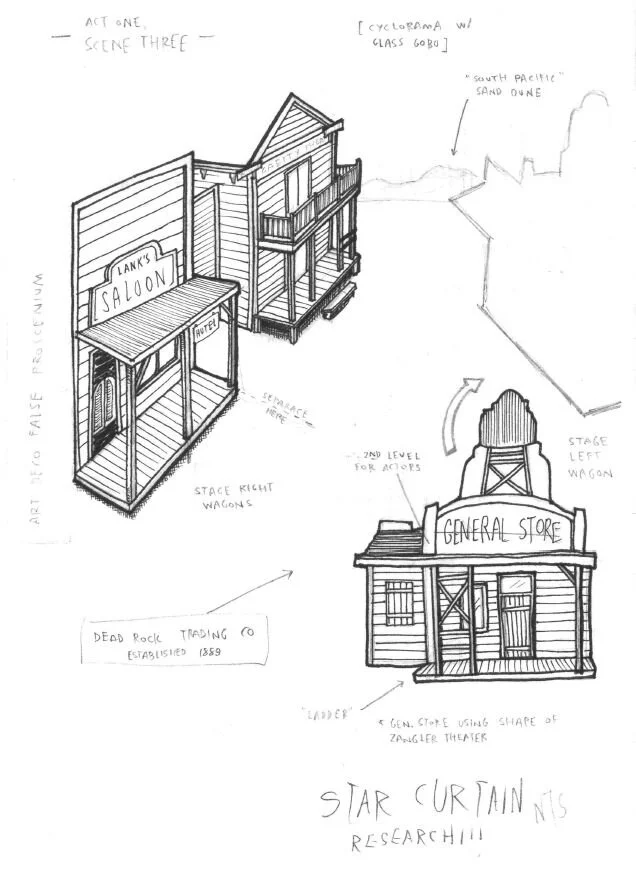 ACT ONE,
SCENE THREE
[CYCLORAMA W/
GLASS GOBO]
"SOUTH PACIFIC"
SAND DUNE
LANK'S
SALOON
HOTEL
ART DECO FALSE PROSCENIUM
SEPARATE
HERE
STAGE RIGHT
WAGONS
2ND LEVEL
FOR ACTORS
STAGE
LEFT
WAGON
GENERAL STORE
DEAD ROCK TRADING CO
ESTABLISHED 1889
"LADDER"
* GEN. STORE USING SHAPE OF
ZANGLER THEATER
STAR CURTAIN NTS
RESEARCH!!!